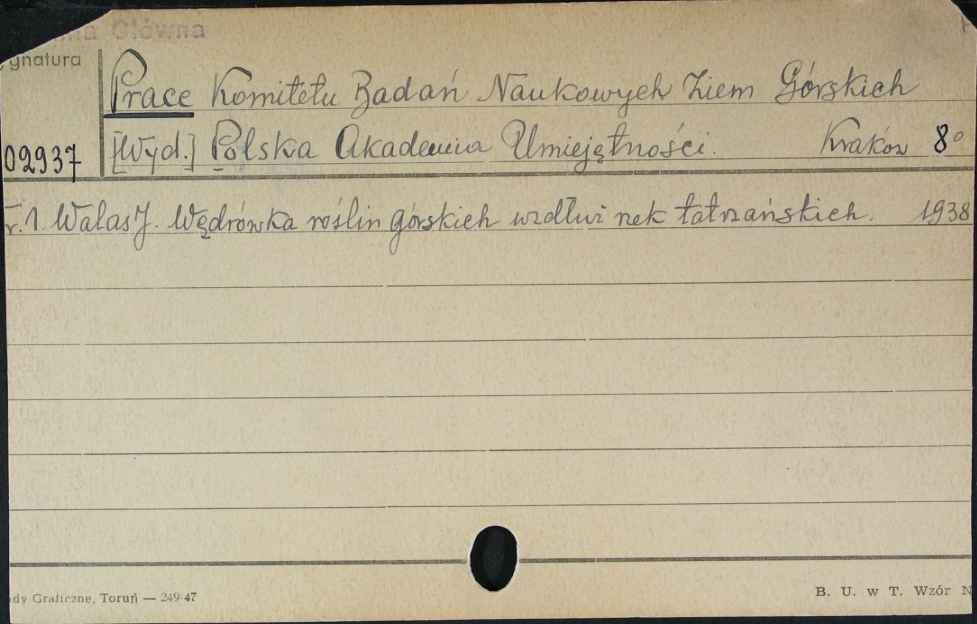 Główna
ygnatura
Prace Komitetu Badań Naukowych Ziem Górskich
02937 [Wyd.] Polska Akademia Umiejętności. Kraków 8°
r. 1. Walas J. Wędrówka roślin górskich wzdłuż rzek tatrzańskich. 1938
dy Graficzne, Toruń — 249-47
B. U. w T. Wzór N